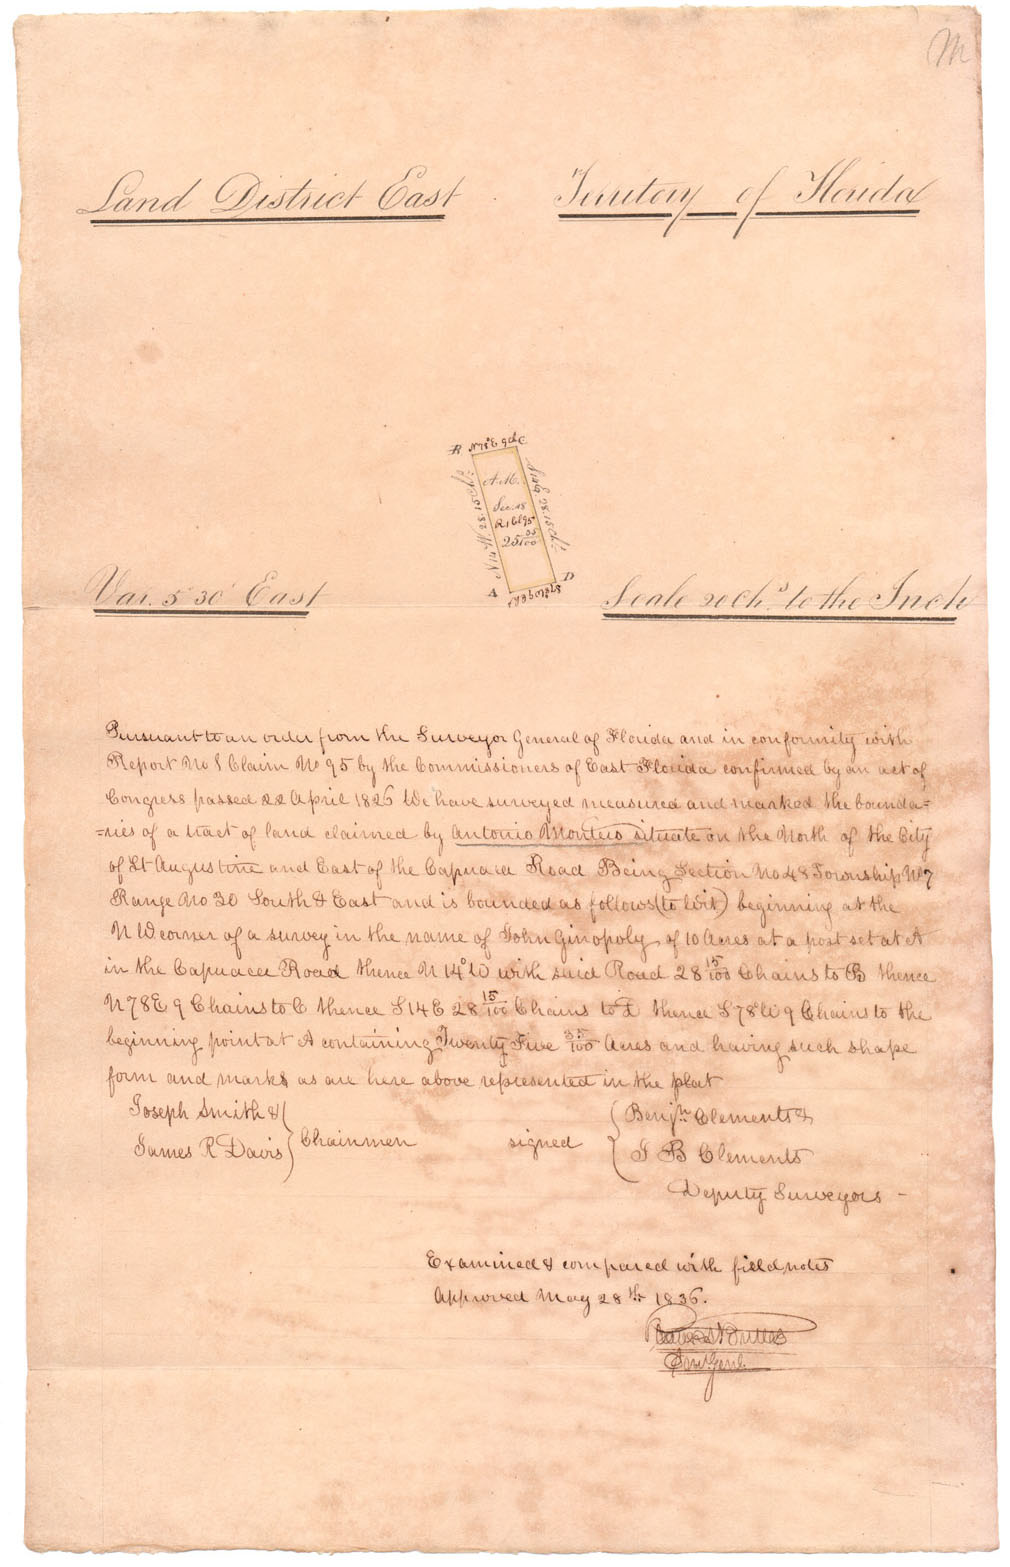 M
Land District East Territory of Florida
B N 78 E 9 ch C
N 14 W 28.15 Chs
S 14 E 28.15 Chs
A.M.
Sec. 48
R 1 Cl 95
25 35/100
A D
Var. 5° 30' East Scale 20 Chs. to the Inch
Pursuant to an order from the Surveyor General of Florida and in conformity with
Report No 1 Claim No 95 by the Commissioners of East Florida confirmed by an act of
Congress passed 22 April 1826 We have surveyed measured and marked the bounda=
=ries of a tract of land claimed by Antonio Montero situate on the North of the City
of St Augustine and East of the Capuaca Road Being Section No 48 Township No 7
Range No 30 South & East and is bounded as follows (to Wit) beginning at the
N W corner of a survey in the name of John Ginopoly of 10 Acres at a post set at A
in the Capuaca Road thence N 14° W with said Road 28 15/100 Chains to B thence
N 78 E 9 Chains to C thence S 14 E 28 15/100 Chains to D thence S 78° W 9 Chains to the
beginning point at A containing Twenty Five 35/100 Acres and having such shape
form and marks as are here above represented in the plat
Joseph Smith & Benjn Clements &
Chainmen signed
James R Davis J B Clements
Deputy Surveyors -
Examined & compared with field notes
Approved May 28th 1836.
Surv. Genl.